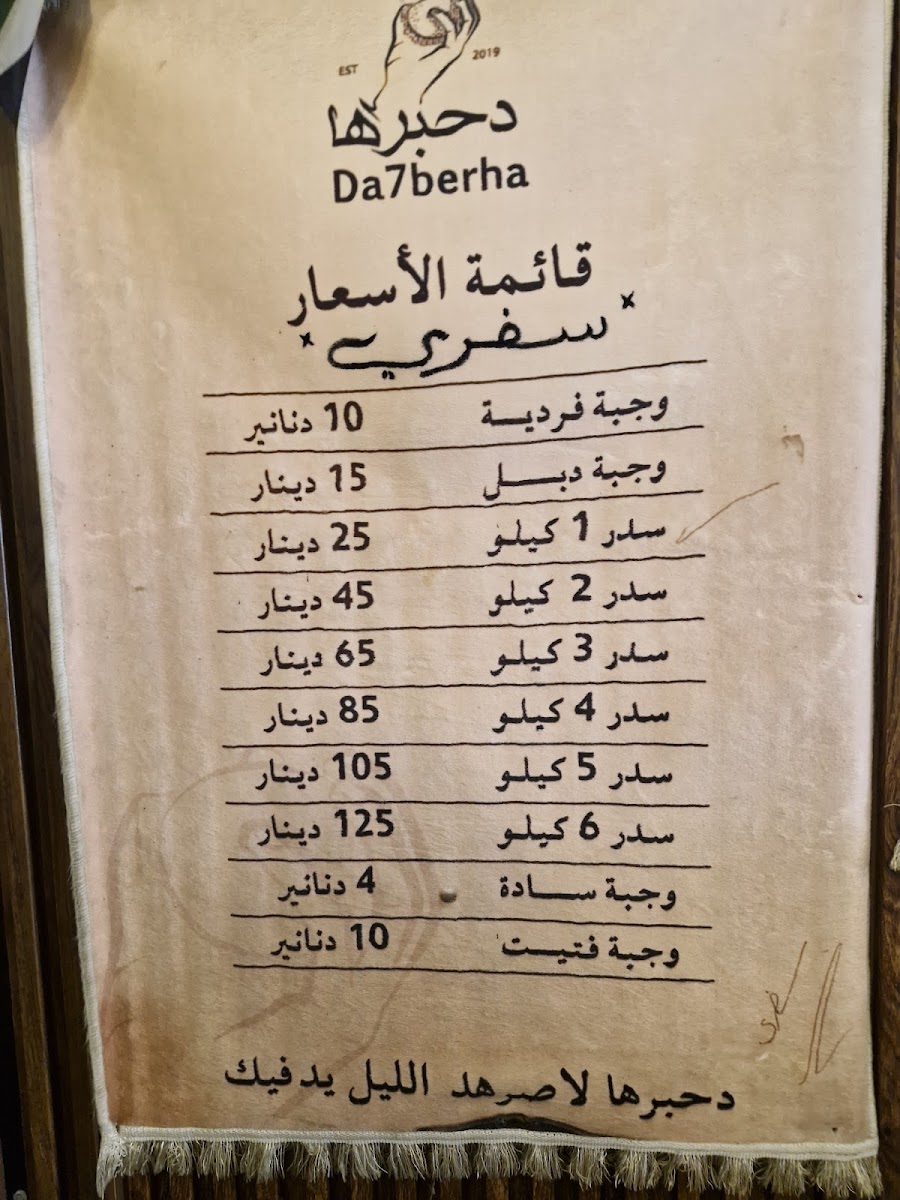 EST 2019
دحبرها
Da7berha
قائمة الأسعار
سفري
وجبة فردية 10 دنانير
وجبة دبل 15 دينار
سدر 1 كيلو 25 دينار
سدر 2 كيلو 45 دينار
سدر 3 كيلو 65 دينار
سدر 4 كيلو 85 دينار
سدر 5 كيلو 105 دينار
سدر 6 كيلو 125 دينار
وجبة سادة 4 دنانير
وجبة فتيت 10 دنانير
دحبرها لاصرهد الليل يدفيك